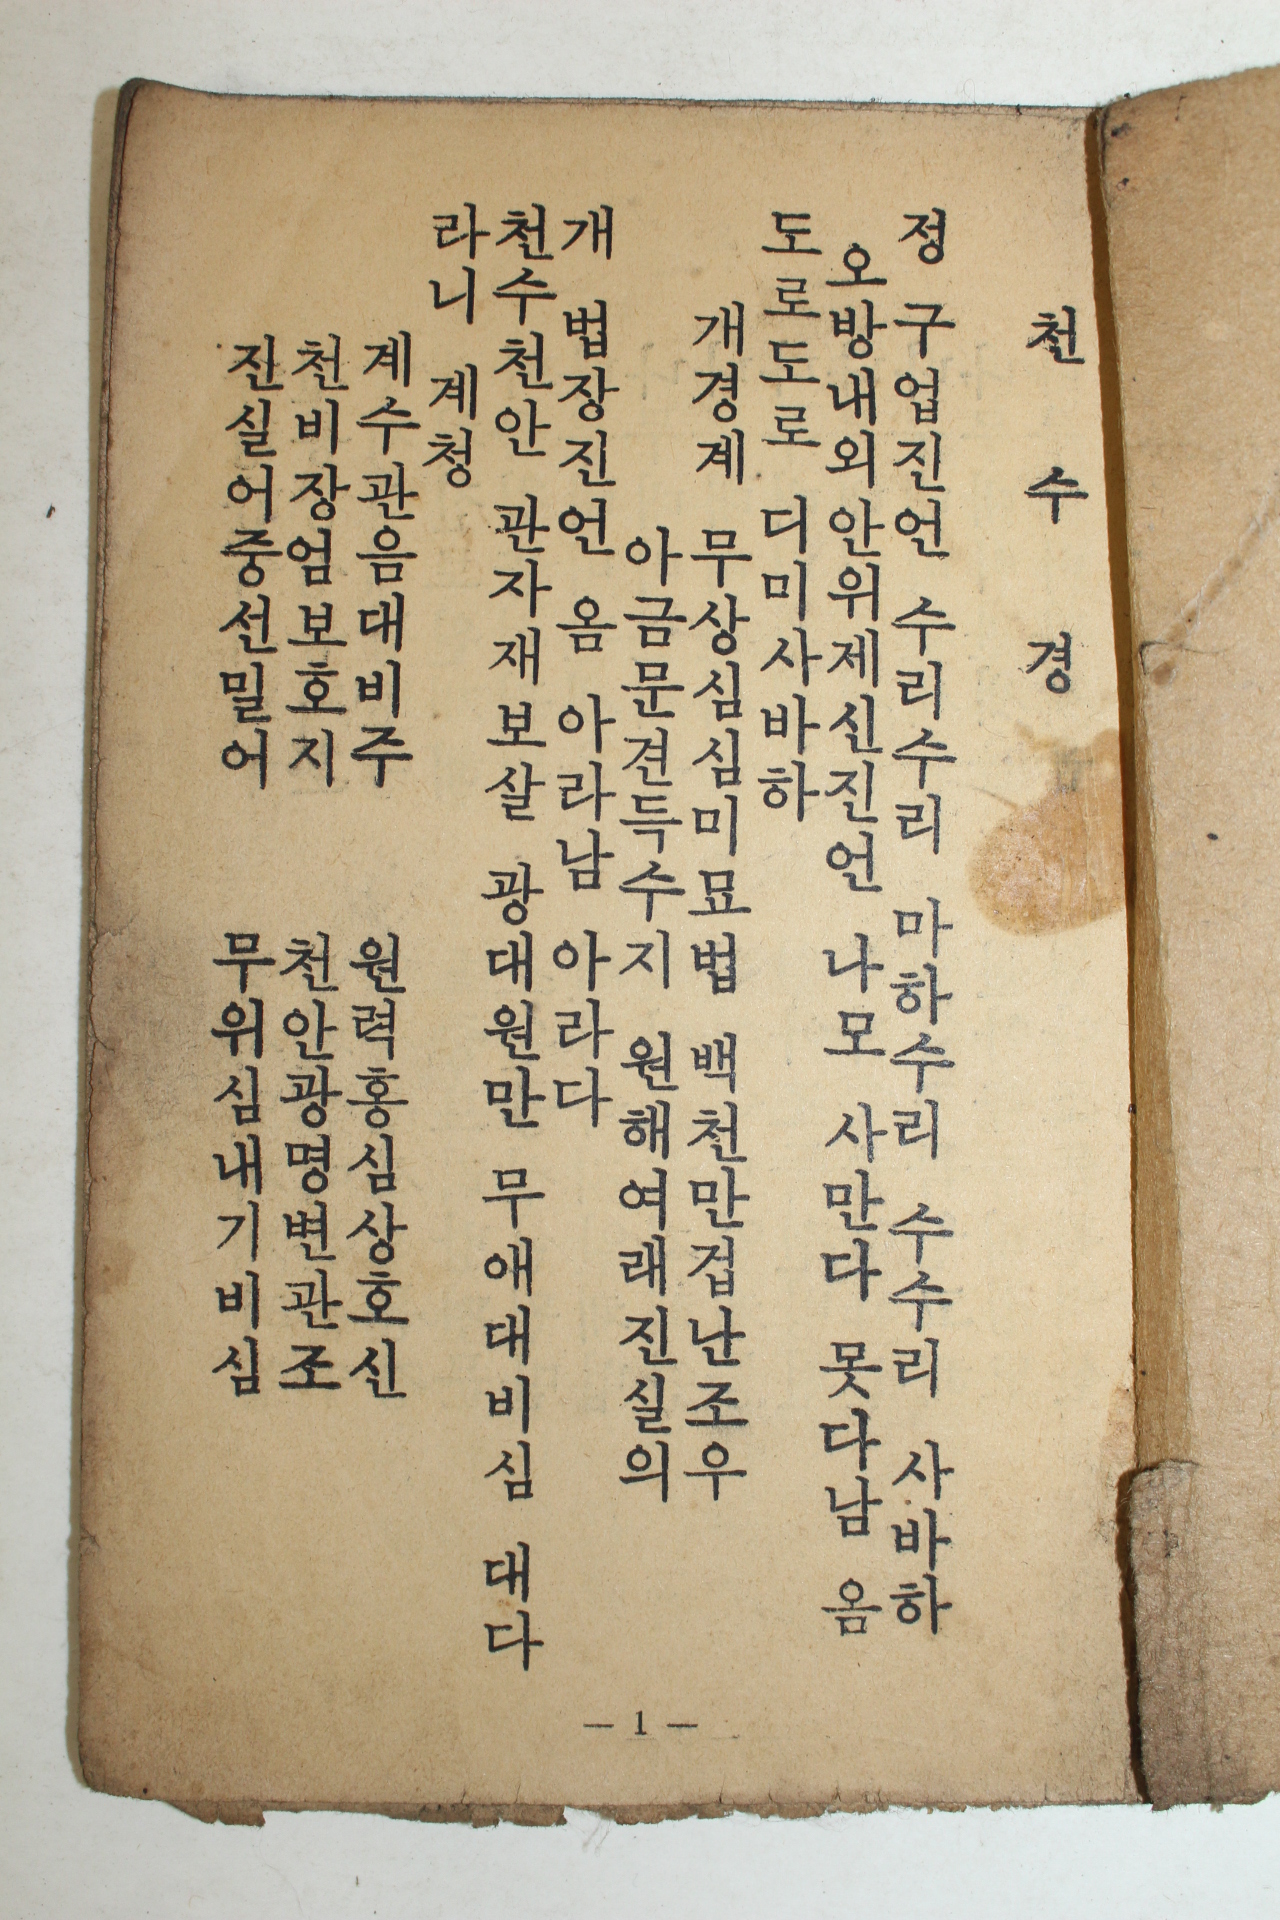 천수경
정 구업진언 수리수리 마하수리 수수리 사바하
오방내외안위제신진언 나모 사만다 못다남 옴
도로도로 디미사바하
개경계 무상심심미묘법 백천만겁난조우
아금문견득수지 원해여래진실의
개 법장진언 옴 아라남 아라다
천수천안 관자재보살 광대원만 무애대비심 대다
라니 계청
계수관음대비주 원력홍심상호신
천비장엄보호지 천안광명변관조
진실어중선밀어 무위심내기비심
— 1 —